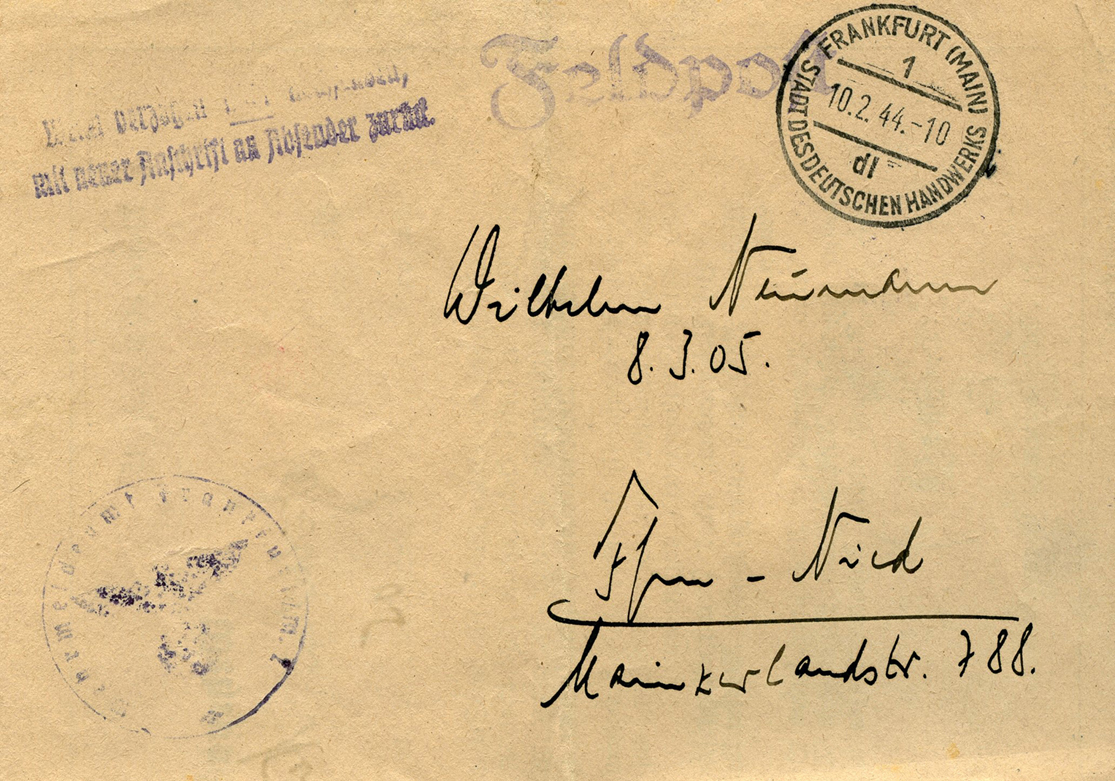 Feldpost
FRANKFURT (MAIN) 1
10.2.44.-10
dl
STADT DES DEUTSCHEN HANDWERKS
verzogen
mit neuer Anschrift an Absender zurück.
Wilhelm Neumann
8.3.05.
Ffm - Nied
Mainzerlandstr. 788.